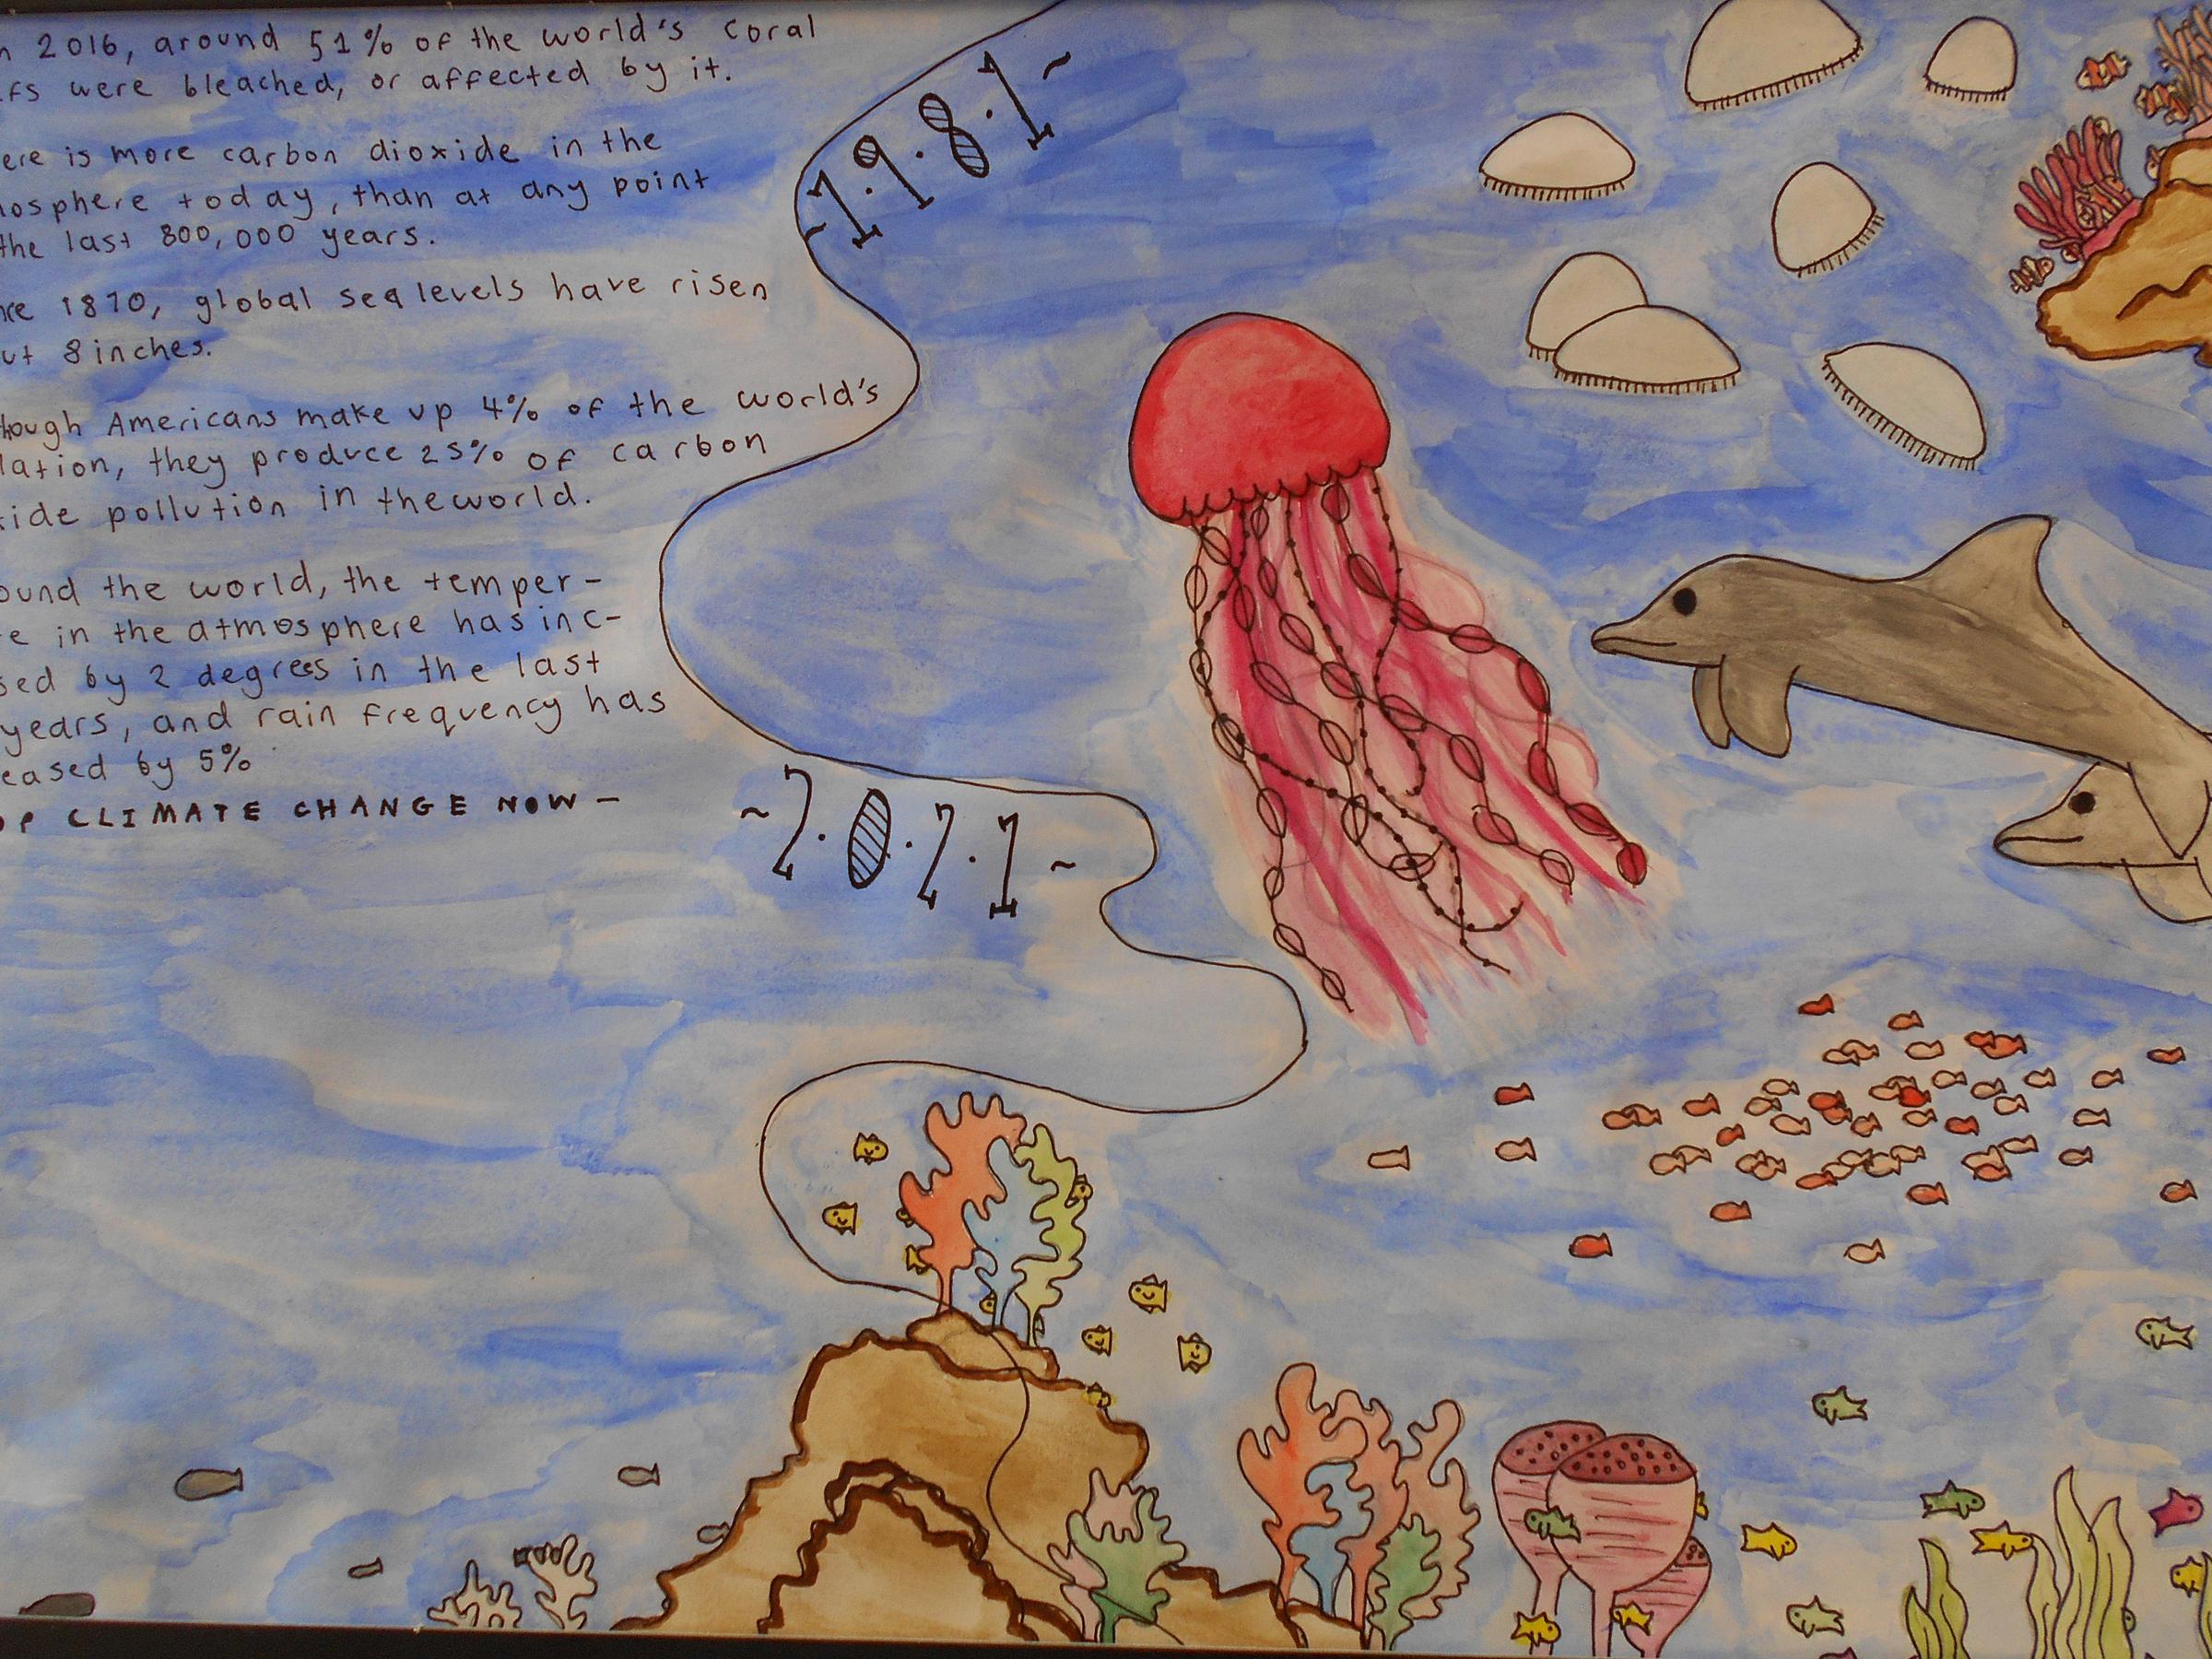 n 2016, around 51% of the world's coral
fs were bleached, or affected by it.
ere is more carbon dioxide in the
osphere today, than at any point
the last 800,000 years.
ce 1870, global sea levels have risen
ut 8 inches.
hough Americans make up 4% of the world's
lation, they produce 25% of carbon
ide pollution in the world.
ound the world, the temper-
e in the atmosphere has inc-
sed by 2 degrees in the last
years, and rain frequency has
eased by 5%
OP CLIMATE CHANGE NOW -
~1.9.8.1~
~2.0.2.1~